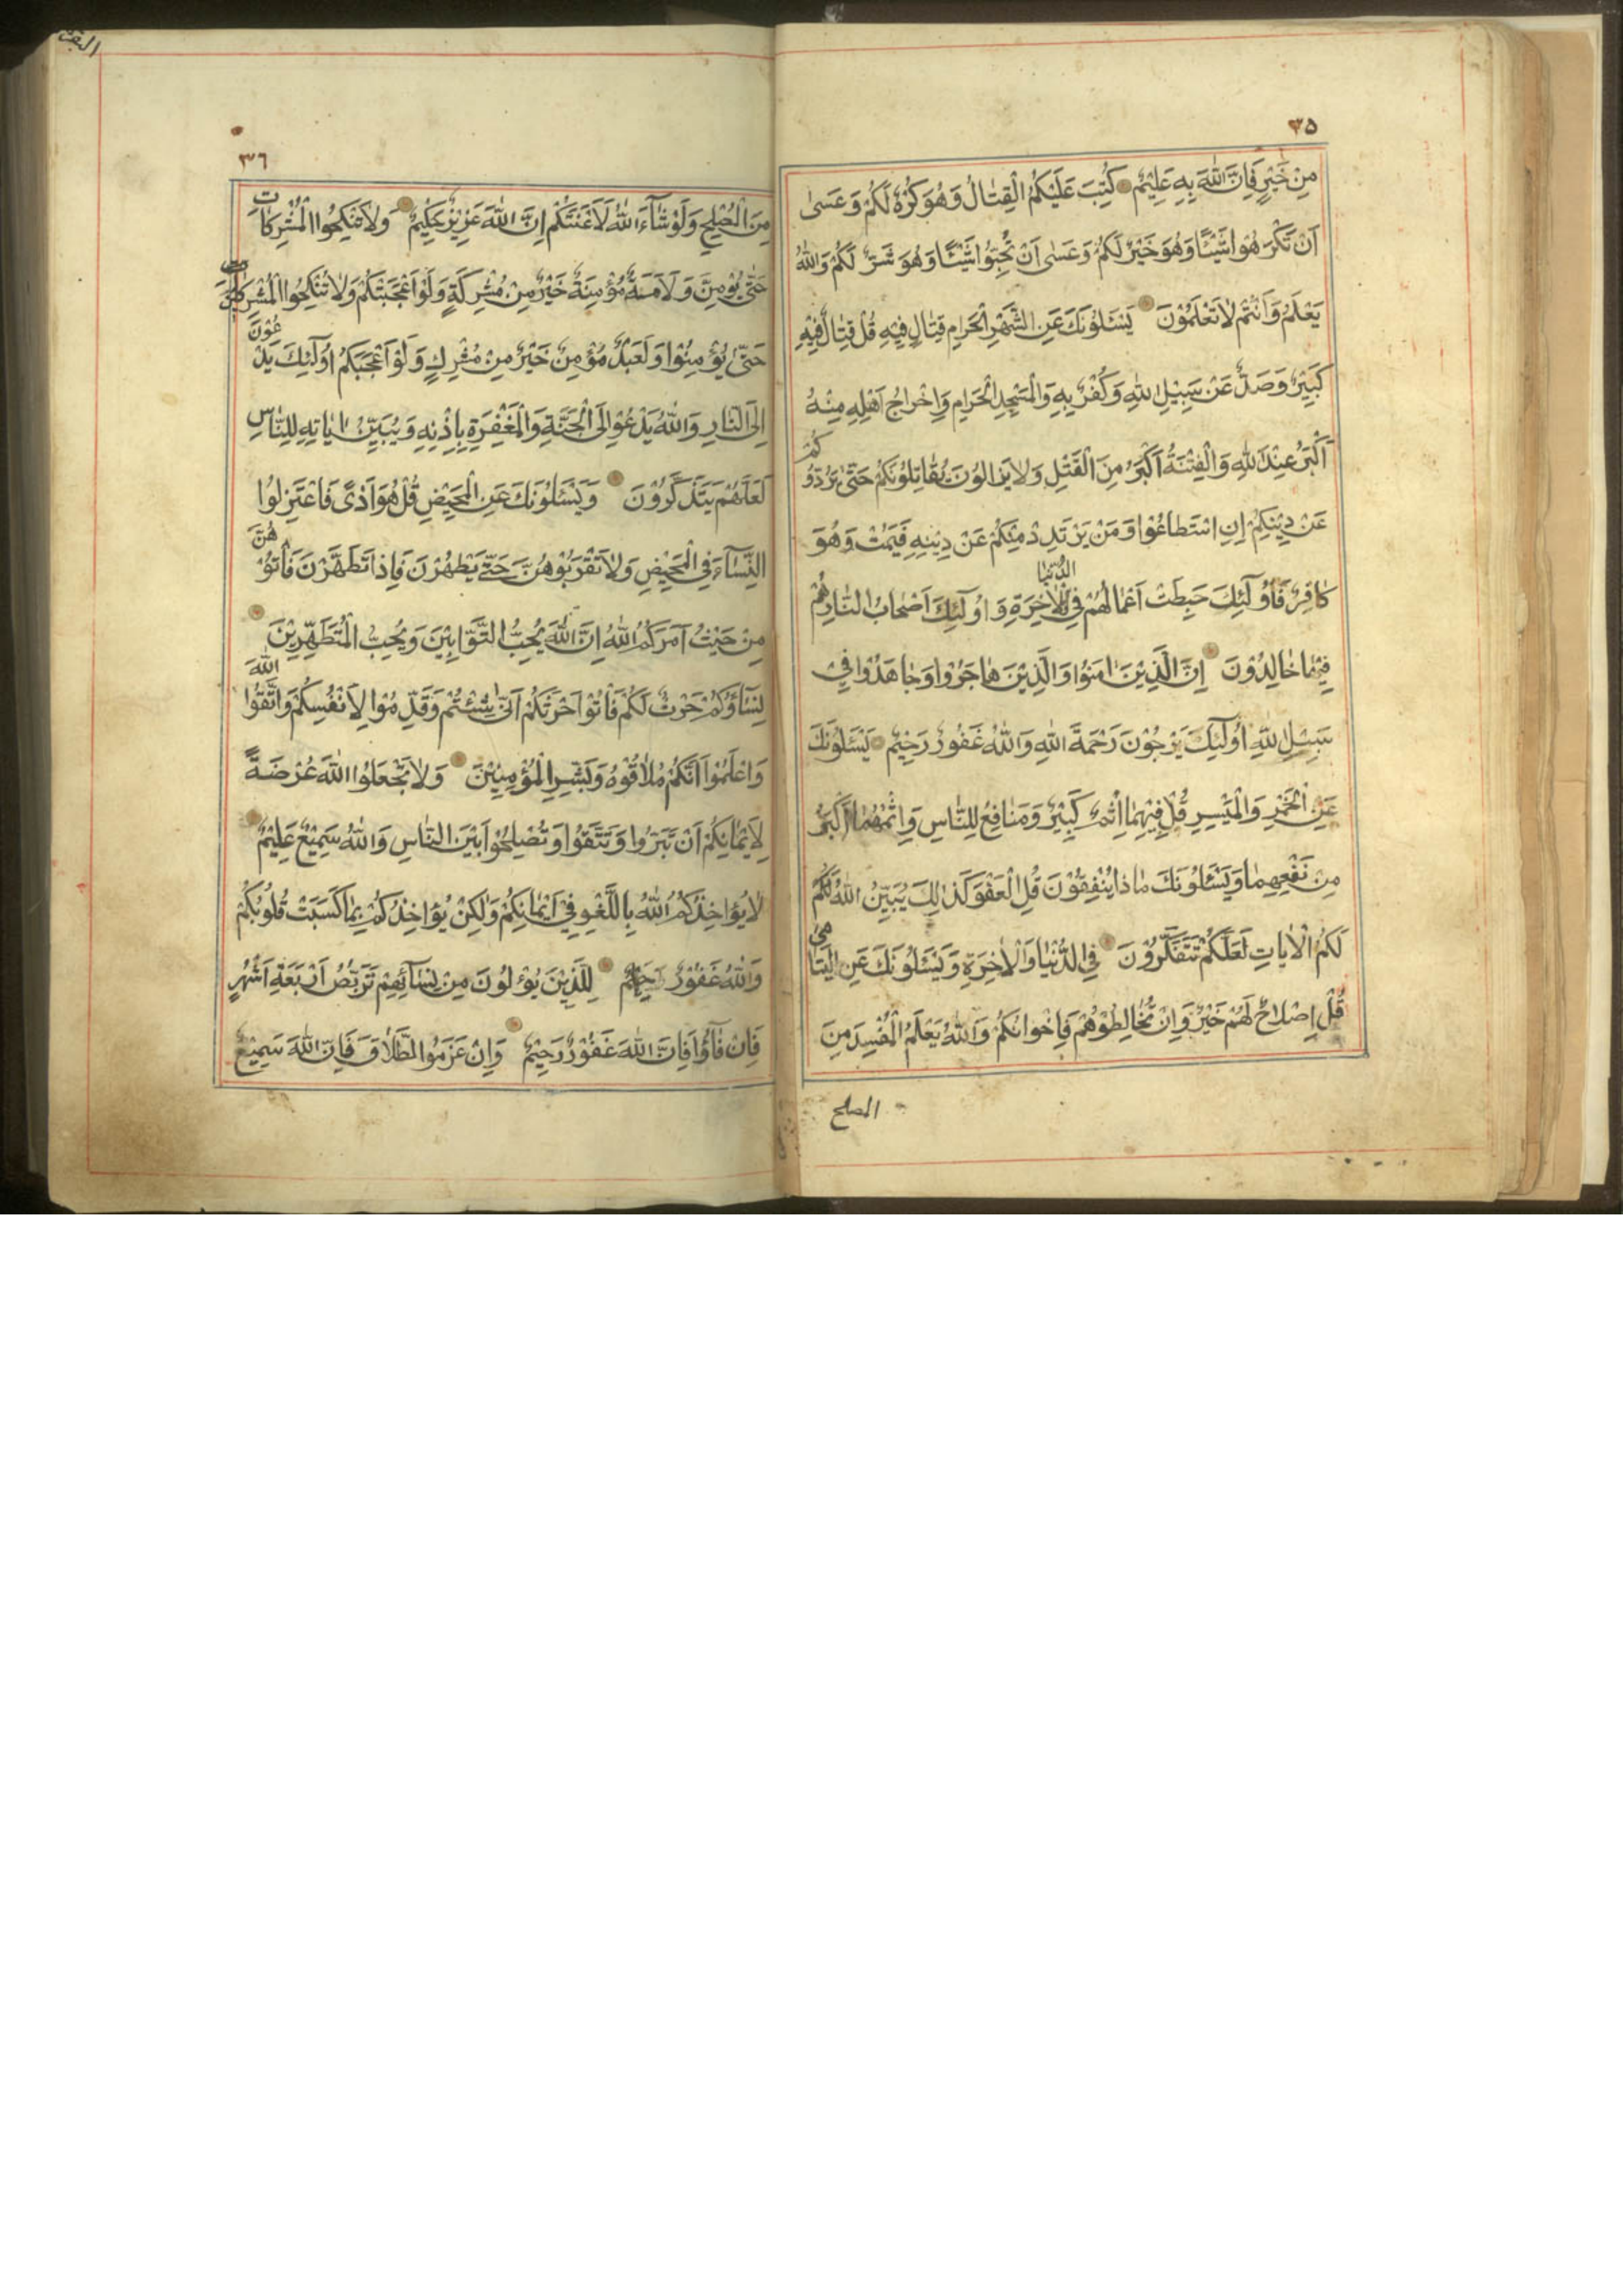 ٣٥
مِنْ خَيْرٍ فَاِنَّ اللّٰهَ بِهٖ عَلِيْمٌ كُتِبَ عَلَيْكُمُ الْقِتٰالُ وَهُوَ كُرْهٌ لَكُمْ وَعَسٰى
اَنْ تَكْرَهُوا شَيْئًا وَهُوَ خَيْرٌ لَكُمْ وَعَسٰى اَنْ تُحِبُّوا شَيْئًا وَهُوَ شَرٌّ لَكُمْ وَاللّٰهُ
يَعْلَمُ وَاَنْتُمْ لٰا تَعْلَمُوْنَ يَسْئَلُوْنَكَ عَنِ الشَّهْرِ الْحَرٰامِ قِتٰالٍ فِيْهِ قُلْ قِتٰالٌ فِيْهِ
كَبِيْرٌ وَصَدٌّ عَنْ سَبِيْلِ اللّٰهِ وَكُفْرٌ بِهٖ وَالْمَسْجِدِ الْحَرٰامِ وَاِخْرٰاجُ اَهْلِهٖ مِنْهُ
اَكْبَرُ عِنْدَ اللّٰهِ وَالْفِتْنَةُ اَكْبَرُ مِنَ الْقَتْلِ وَلٰا يَزٰالُوْنَ يُقٰاتِلُوْنَكُمْ حَتّٰى يَرُدُّوكُمْ
عَنْ دِيْنِكُمْ اِنِ اسْتَطٰاعُوْا وَمَنْ يَرْتَدِدْ مِنْكُمْ عَنْ دِيْنِهٖ فَيَمُتْ وَهُوَ
كٰافِرٌ فَاُولٰٓئِكَ حَبِطَتْ اَعْمٰالُهُمْ فِى الدُّنْيٰا وَالْاٰخِرَةِ وَاُولٰٓئِكَ اَصْحٰابُ النّٰارِ هُمْ
فِيْهٰا خٰالِدُوْنَ اِنَّ الَّذِيْنَ اٰمَنُوْا وَالَّذِيْنَ هٰاجَرُوْا وَجٰاهَدُوْا فِيْ
سَبِيْلِ اللّٰهِ اُولٰٓئِكَ يَرْجُوْنَ رَحْمَةَ اللّٰهِ وَاللّٰهُ غَفُوْرٌ رَحِيْمٌ يَسْئَلُوْنَكَ
عَنِ الْخَمْرِ وَالْمَيْسِرِ قُلْ فِيْهِمٰا اِثْمٌ كَبِيْرٌ وَمَنٰافِعُ لِلنّٰاسِ وَاِثْمُهُمٰا اَكْبَرُ
مِنْ نَفْعِهِمٰا وَيَسْئَلُوْنَكَ مٰا ذٰا يُنْفِقُوْنَ قُلِ الْعَفْوَ كَذٰلِكَ يُبَيِّنُ اللّٰهُ لَكُمْ
لَكُمُ الْاٰيٰاتِ لَعَلَّكُمْ تَتَفَكَّرُوْنَ فِى الدُّنْيٰا وَالْاٰخِرَةِ وَيَسْئَلُوْنَكَ عَنِ الْيَتٰامٰى
قُلْ اِصْلٰاحٌ لَهُمْ خَيْرٌ وَاِنْ تُخٰالِطُوْهُمْ فَاِخْوٰانُكُمْ وَاللّٰهُ يَعْلَمُ الْمُفْسِدَ مِنَ
المصلح
البقرة
٣٦
مِنَ الْمُصْلِحِ وَلَوْ شٰٓاءَ اللّٰهُ لَاَعْنَتَكُمْ اِنَّ اللّٰهَ عَزِيْزٌ حَكِيْمٌ وَلٰا تَنْكِحُوا الْمُشْرِكٰاتِ
حَتّٰى يُؤْمِنَّ وَلَاَمَةٌ مُؤْمِنَةٌ خَيْرٌ مِنْ مُشْرِكَةٍ وَلَوْ اَعْجَبَتْكُمْ وَلٰا تُنْكِحُوا الْمُشْرِكِيْنَ
حَتّٰى يُؤْمِنُوْا وَلَعَبْدٌ مُؤْمِنٌ خَيْرٌ مِنْ مُشْرِكٍ وَلَوْ اَعْجَبَكُمْ اُولٰٓئِكَ يَدْعُوْنَ
اِلَى النّٰارِ وَاللّٰهُ يَدْعُوْا اِلَى الْجَنَّةِ وَالْمَغْفِرَةِ بِاِذْنِهٖ وَيُبَيِّنُ اٰيٰاتِهٖ لِلنّٰاسِ
لَعَلَّهُمْ يَتَذَكَّرُوْنَ وَيَسْئَلُوْنَكَ عَنِ الْمَحِيْضِ قُلْ هُوَ اَذًى فَاعْتَزِلُوا
النِّسٰٓاءَ فِى الْمَحِيْضِ وَلٰا تَقْرَبُوْهُنَّ حَتّٰى يَطْهُرْنَ فَاِذٰا تَطَهَّرْنَ فَأْتُوْهُنَّ
مِنْ حَيْثُ اَمَرَكُمُ اللّٰهُ اِنَّ اللّٰهَ يُحِبُّ التَّوّٰابِيْنَ وَيُحِبُّ الْمُتَطَهِّرِيْنَ
نِسٰٓاؤُكُمْ حَرْثٌ لَكُمْ فَأْتُوْا حَرْثَكُمْ اَنّٰى شِئْتُمْ وَقَدِّمُوْا لِاَنْفُسِكُمْ وَاتَّقُوا اللّٰهَ
وَاعْلَمُوْا اَنَّكُمْ مُلٰاقُوْهُ وَبَشِّرِ الْمُؤْمِنِيْنَ وَلٰا تَجْعَلُوا اللّٰهَ عُرْضَةً
لِاَيْمٰانِكُمْ اَنْ تَبَرُّوا وَتَتَّقُوْا وَتُصْلِحُوْا بَيْنَ النّٰاسِ وَاللّٰهُ سَمِيْعٌ عَلِيْمٌ
لٰا يُؤٰاخِذُكُمُ اللّٰهُ بِاللَّغْوِ فِيْ اَيْمٰانِكُمْ وَلٰكِنْ يُؤٰاخِذُكُمْ بِمٰا كَسَبَتْ قُلُوْبُكُمْ
وَاللّٰهُ غَفُوْرٌ لِلَّذِيْنَ يُؤْلُوْنَ مِنْ نِسٰٓائِهِمْ تَرَبُّصُ اَرْبَعَةِ اَشْهُرٍ
فَاِنْ فٰٓاؤُا فَاِنَّ اللّٰهَ غَفُوْرٌ رَحِيْمٌ وَاِنْ عَزَمُوا الطَّلٰاقَ فَاِنَّ اللّٰهَ سَمِيْعٌ